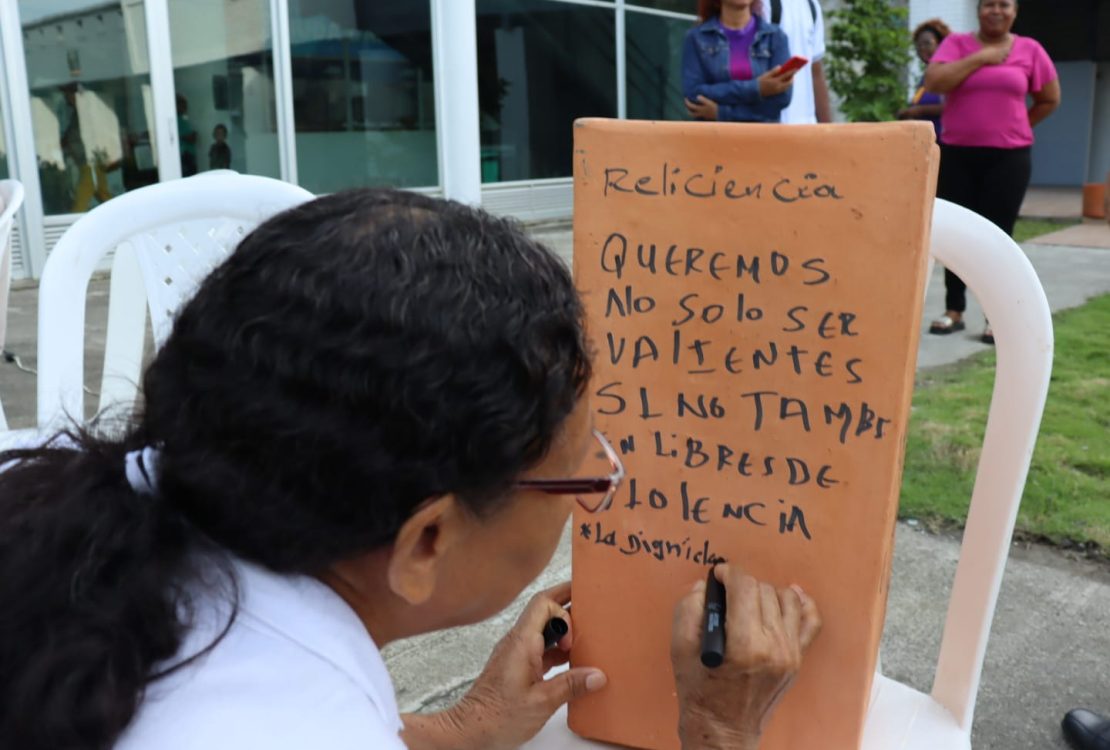 Reliciencia
QUEREMOS
No Solo SER
VALIENTES
SI No TAMBI
N LiBRES DE
IOlENCiA
*La Dignida